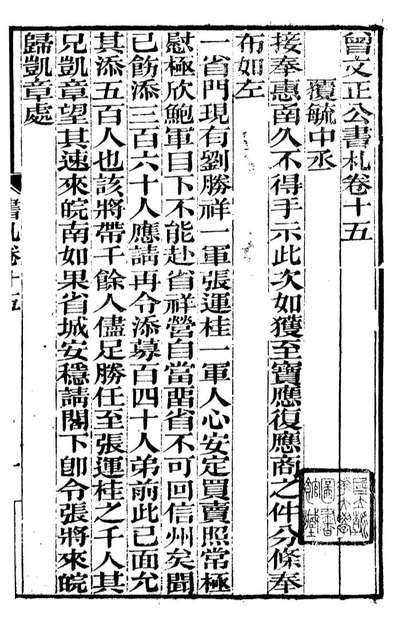 曾文正公書札卷十五
覆毓中丞
接奉惠函久不得手示此次如獲至寶應復應商之件分條奉
布如左
一省門現有劉勝祥一軍張運桂一軍人心安定買賣照常極
慰極欣鮑軍目下不能赴省祥營自當畱省不可回信州矣聞
已飭添三百六十人應請再令添募百四十人弟前此已面允
其添五百人也該將帶千餘人儘足勝任至張運桂之千人其
兄凱章望其速來皖南如果省城安穩請閣下卽令張將來皖
歸凱章處
書札卷十五